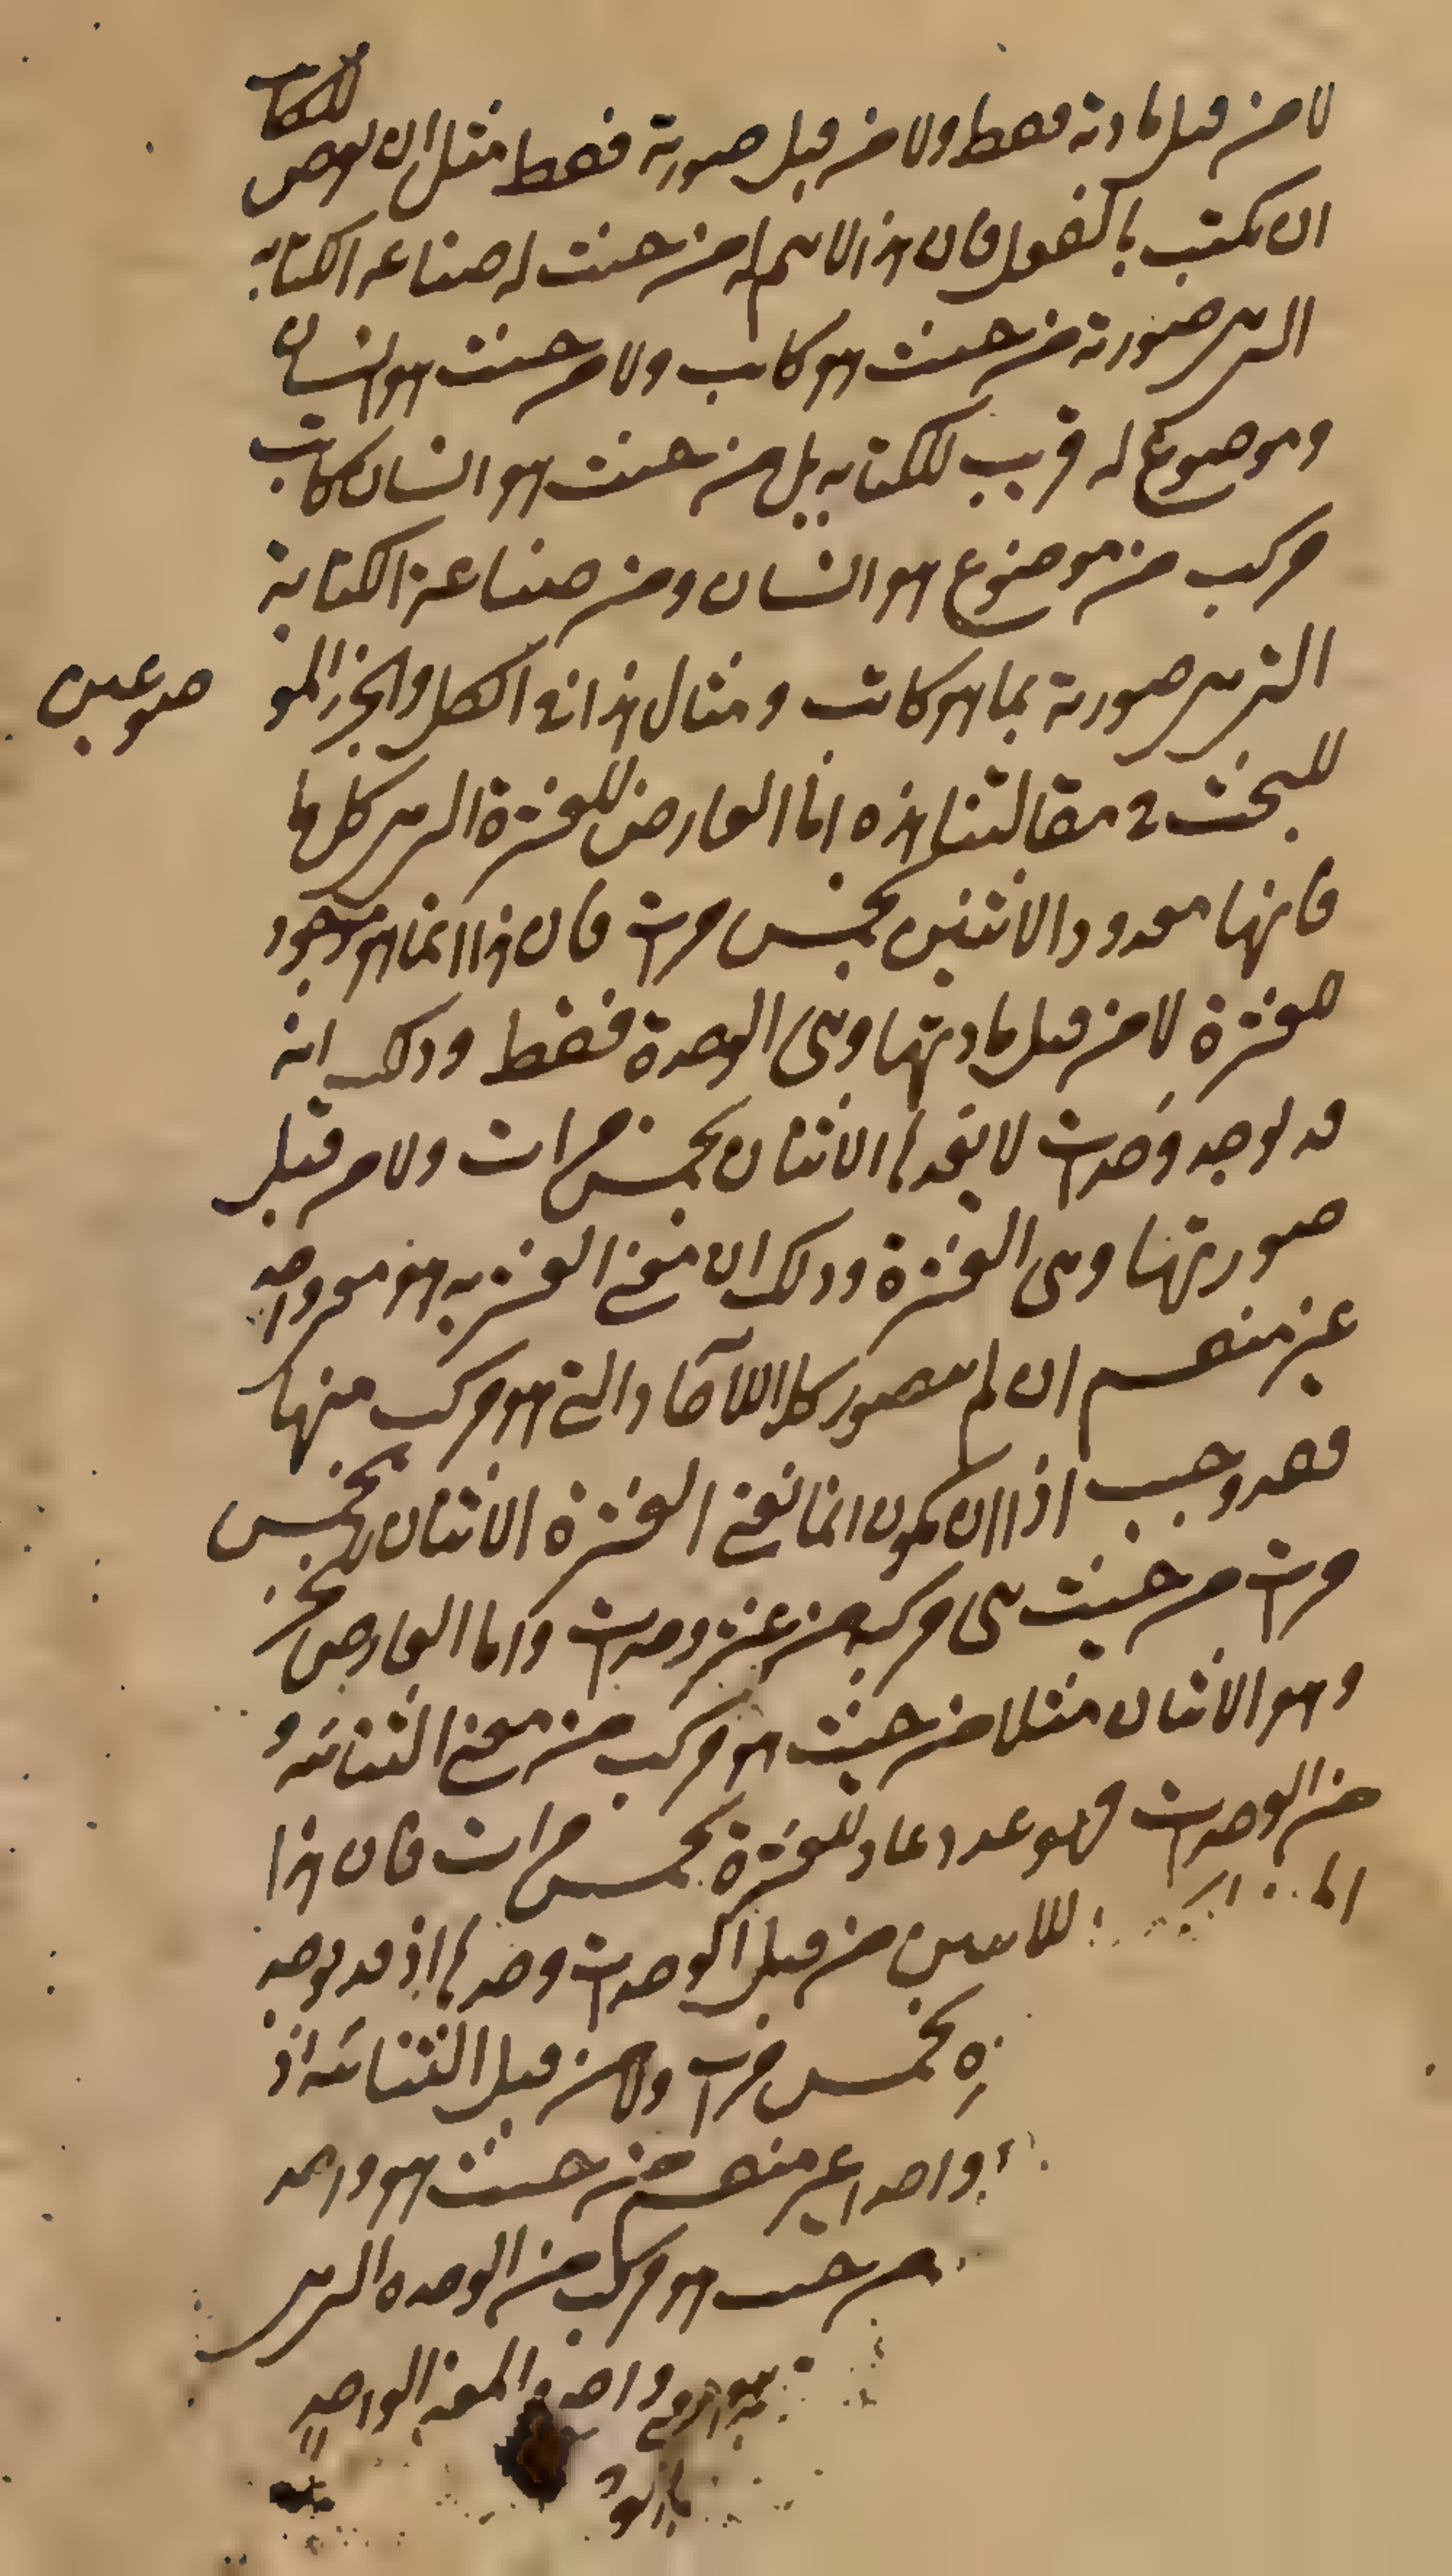 لا من قبل مادته فقط ولا من قبل صورته فقط مثل ان يعرض للكاتب
ان يكتب بالفعل فان هذا لا سم له من حيث له صناعه الكتابه
التي هي صورته من حيث هو كاتب ولا من حيث هو انسان
وموضوع له قريب للكتابه بل من حيث هو انسان كاتب
مركب من موضوع هو انسان ومن صناعة الكتابة
التي هي صورته بما هو كاتب ومثال هذا في الكل والجز المو
ضوعين
للبحث في مقالتنا هذه اما العارض للعشرة التي هي كل ما
فانها معدود الاثنين بخمس مرات فان هذا انما هو موجود
للعشرة لا من قبل مادتها وهى الوحدة فقط وذلك انه
قد توجد وحدات لا يعدها الاثنان بخمس مرات ولا من قبل
صورتها وهى العشرة وذلك ان معنى العشريه هو معنى واحد
غير منقسم ان لم يتصور كل الاآحاد التي هو مركب منها
فقد وجب اذا ان يكون انما يعد العشرة الاثنان بخمس
مرات من حيث هى مركبه من عشر وحدات واما العارض للجز
وهو الاثنان مثلا من حيث هو مركب من معنى الثنائيه و
من الوحدات فهو عدد عاد للعشرة بخمس مرات فان هذا
للاثنين من قبل الوحدات وحدها اذ قد توجد
ه بخمس مرات ولا من قبل الثنائيه اذ
واحدا غير منقسم من حيث هو واحد
من حيث هو مركب من الوحده التي هي
واحد والمعنى الواحد